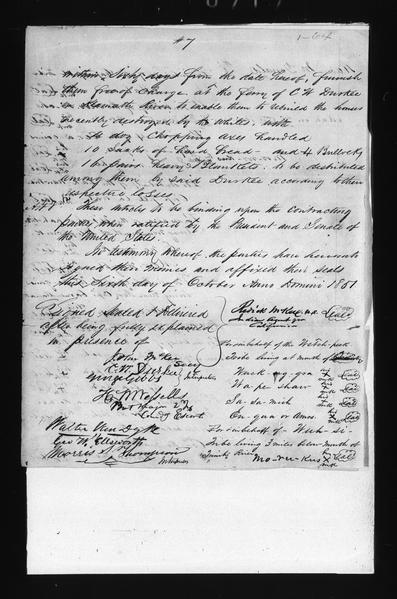 #7
within Sixty days from the date hereof, furnish
them free of charge, at the ferry of C W Durkee
in Klamath River to enable them to rebuild the houses
recently destroyed by the Whites, with
do doz. Chopping axes handled
10 Sacks of Hard Bread - and 4 Bullocks
16 pairs heavy Blankets to be distributed
among them by said Durkee according to their
respective losses
These articles to be binding upon the Contracting
parties when ratified by the President and Senate of
the United States.
In testimony whereof the parties have hereunto
signed their names and affixed their seals
this Sixth day of October Anno Domini 1851
Signed Sealed & Delivered
after being fully explained
in presence of
John McKee Secy
C. W. Durkee
Interpreters
H. W. Wessells
Bvt Major 2d Inf
Comdg Escort
Walter Van Dyke
Geo W. Ellsworth
Morris S. Thompson
Witnesses
Redick McKee
Indian Agent for
California
For and in behalf of the Wetch-peck
Tribe living at mouth of
Wuck-ug-gra
Wa-pe-shaw
Sa-sa-mich
En-qua or Amos
For and in behalf of Wuch-si-
Tribe living 3 miles below mouth of
Trinity River
Mo-ru-kus